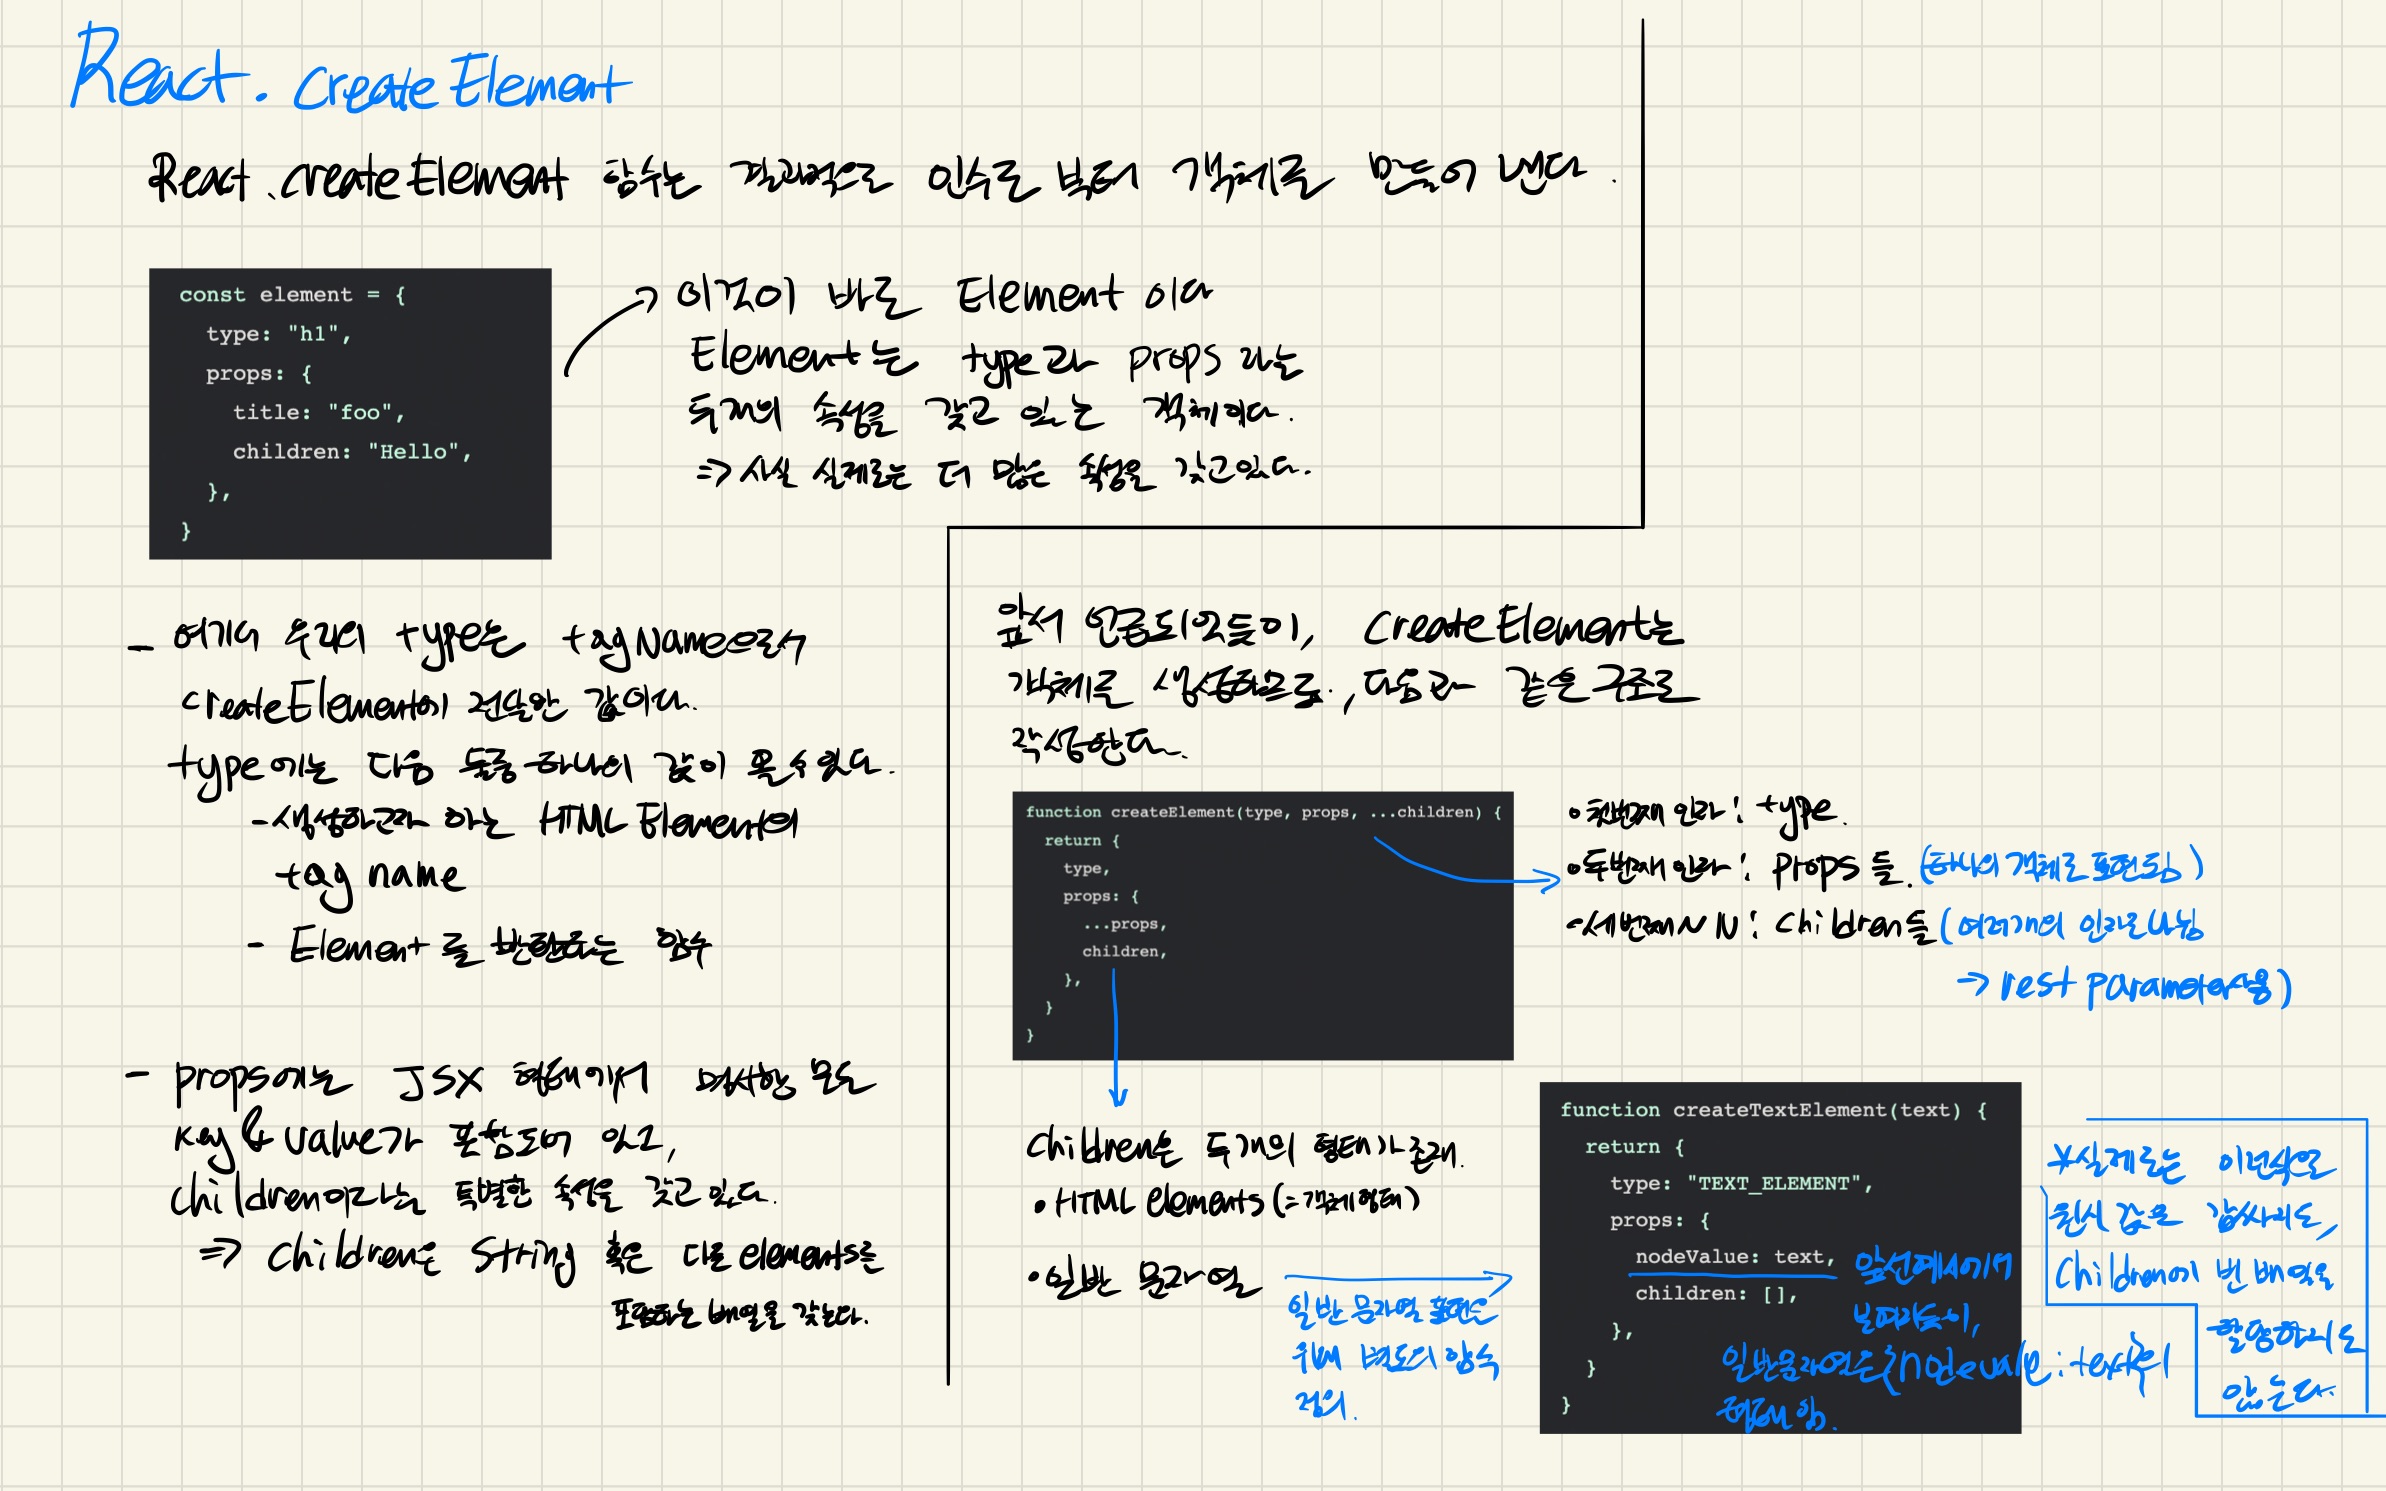 React.createElement
React.createElement 함수는 결과적으로 인수로 부터 객체를 만들어 낸다.
const element = {
type: "h1",
props: {
title: "foo",
children: "Hello",
},
}
이것이 바로 Element 이다
Element는 type과 props 라는
두개의 속성을 갖고 있는 객체이다.
=> 사실 실제로는 더 많은 속성을 갖고있다.
- 여기서 우리의 type는 tagName으로서
createElement에 전달한 값이다.
type에는 다음 둘중 하나의 값이 올 수 있다.
- 생성하고자 하는 HTML Element의
tag name
- Element를 반환하는 함수
- props에는 JSX 형태에서 명시한 모든
key & value가 포함되어 있고,
children이라는 특별한 속성을 갖고 있다.
=> children은 string 혹은 다른 elements를
포함하는 배열을 갖는다.
앞서 언급되었듯이, createElement는
객체를 생성하므로, 다음과 같은 구조로
작성한다.
function createElement(type, props, ...children) {
return {
type,
props: {
...props,
children,
},
}
}
• 첫번째 인자 : type.
• 두번째 인자 : props 들. (하나의 객체로 표현됨)
• 세번째 〃 : children들 (여러개의 인자로 나뉨
=> rest parameter사용)
children은 두개의 형태가 존재.
• HTML elements (= 객체형태)
• 일반 문자열
일반 문자열 표현은
위해 별도의 양식
정의.
function createTextElement(text) {
return {
type: "TEXT_ELEMENT",
props: {
nodeValue: text,
children: [],
},
}
}
앞선예시에서
보여지듯이,
일반문자열은 {nodevalue : text}의
형태임.
*실제로는 이런식으로
원시 값을 감싸지도,
children에 빈 배열을
할당하지도
않는다.